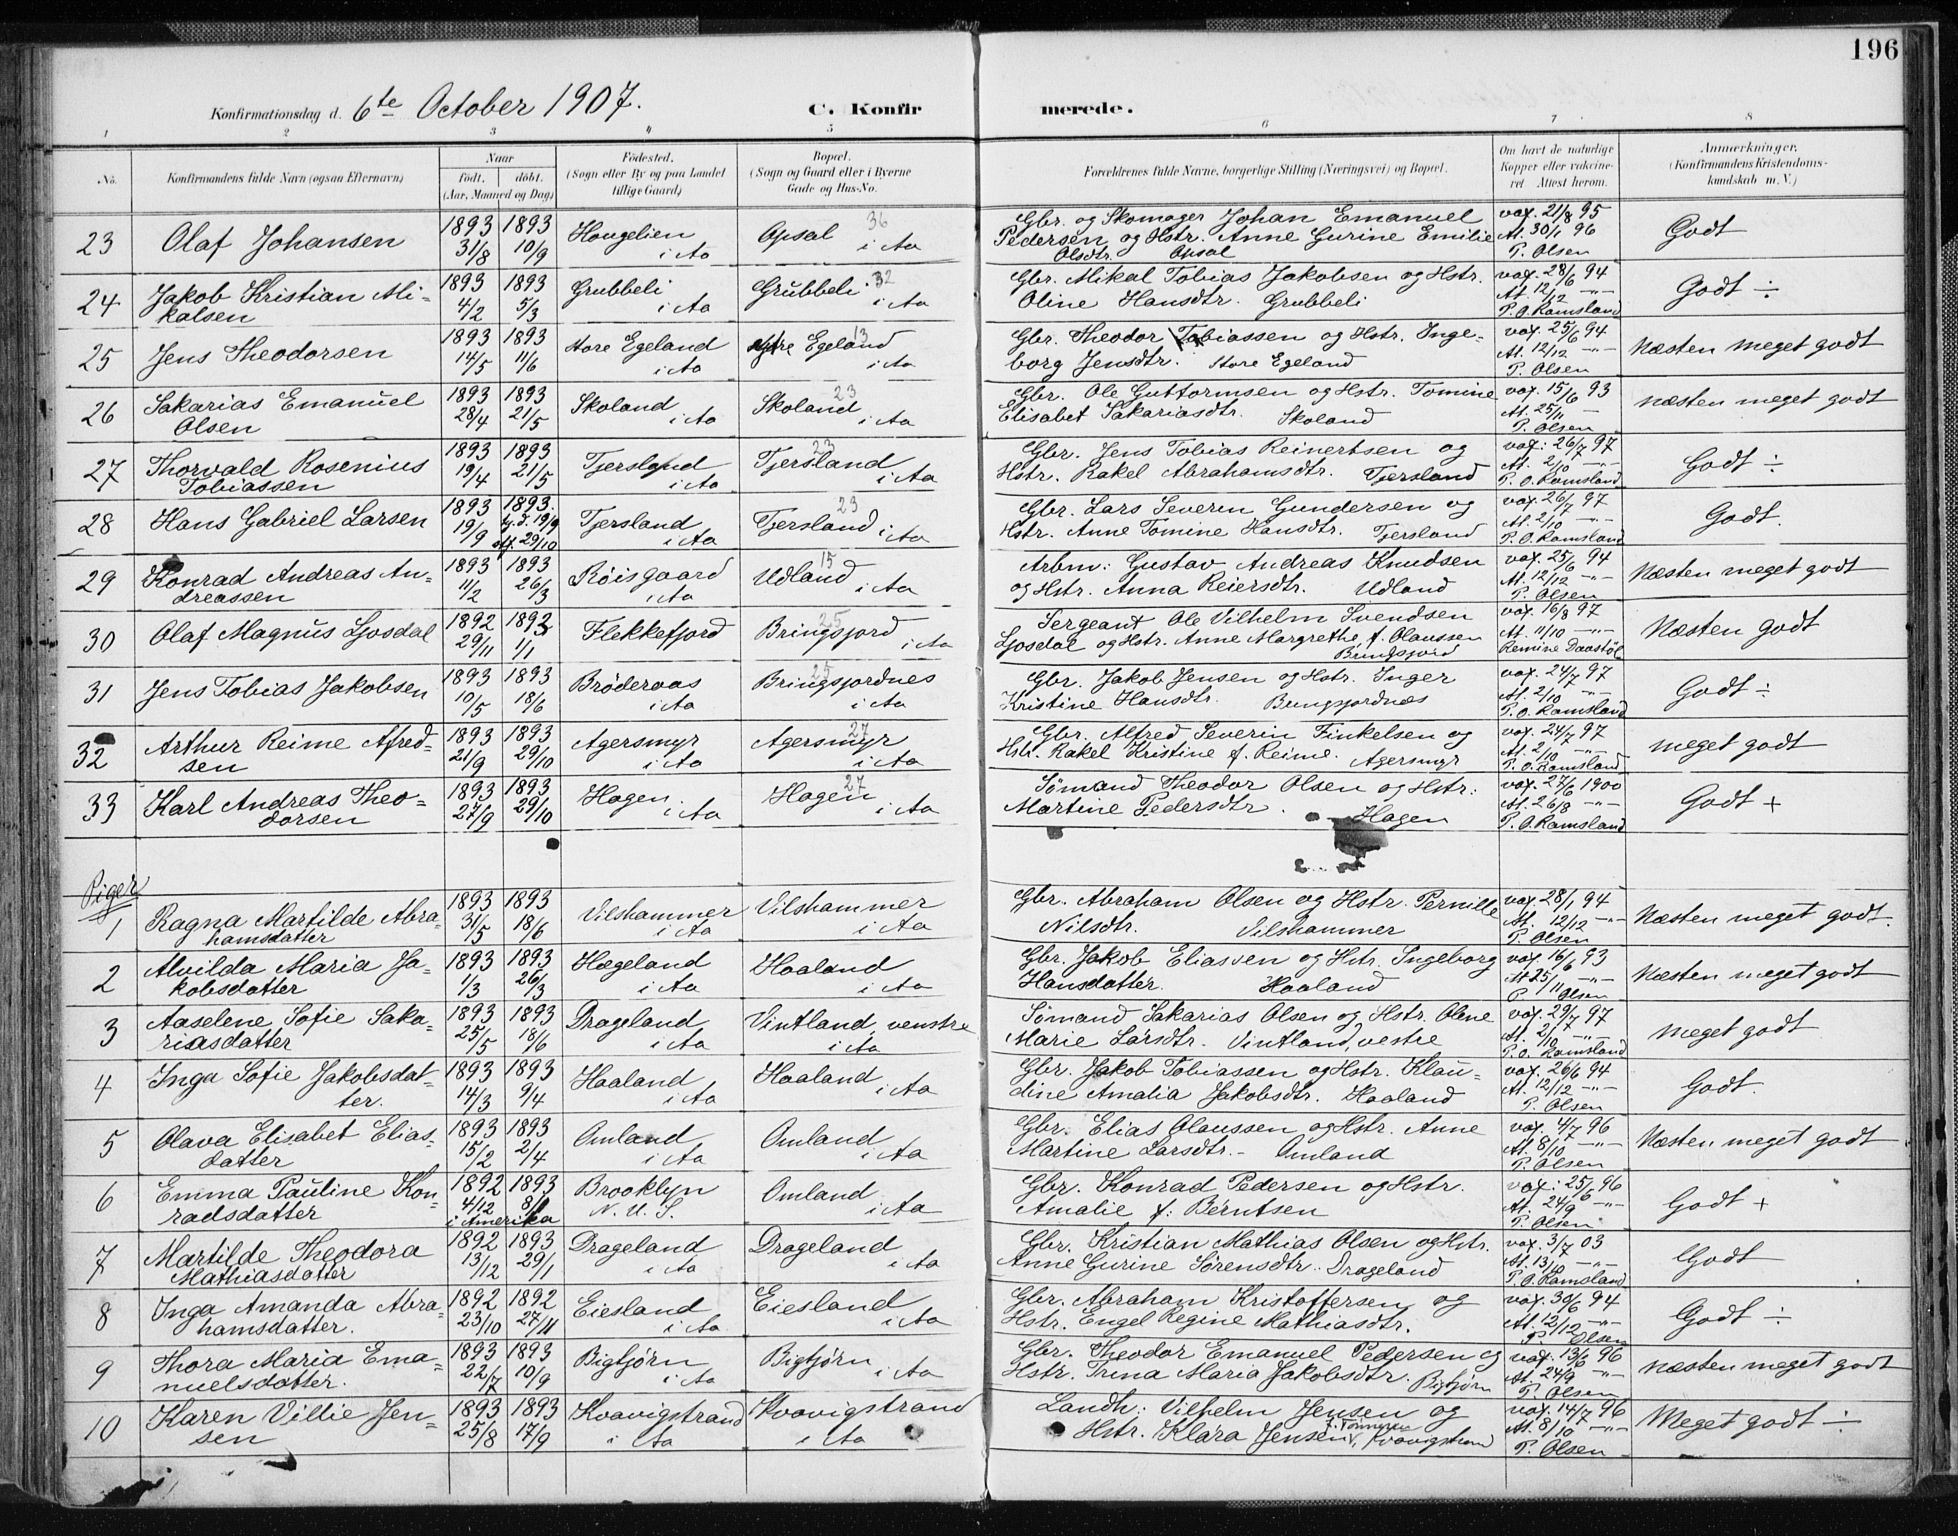 196
Konfirmationsdag d. 6te October 1907. C. Konfir merede.
1 2 3 4 5 6 7 8
No. Konfirmandens fulde Navn (ogsaa Efternavn) Naar født. døbt. (Aar, Maaned og Dag) Fødested. (Sogn eller By og paa Landet tillige Gaard) Bopæl. (Sogn og Gaard eller i Byerne Gade og Hus-No. Forældrenes fulde Navne, borgerlige Stilling (Næringsvei) og Bopæl. Om havt de naturlige Kopper eller vaccineret. Attest herom. Anmærkninger. (Konfirmandens Kristendomskundskab m. V.)
23 Olaf Johansen 1893 31/8 1893 10/9 Hougelien i Aa Opsal i Aa 36 Gbr. og Skomager Johan Emanuel Pedersen og Hstr. Anne Gurine Emilie Olsdtr. Opsal vax. 21/8 95 At. 30/1 96 P. Olsen Godt
24 Jakob Kristian Mikalsen 1893 4/2 1893 5/3 Grubbeli i Aa Grubbeli i Aa 32 Gbr. Mikal Tobias Jakobsen og Hstr. Oline Hansdtr. Grubbeli vax. 28/6 94 At. 12/12 -"- P. O. Ramsland Godt ÷
25 Jens Theodorsen 1893 14/5 1893 11/6 Store Egeland i Aa Egeland i Aa 13 Gbr. Theodor Tobiassen og Hstr. Ingeborg Jensdtr. Store Egeland vax. 25/6 94 At. 12/12 -"- P. Olsen Næsten meget godt
26 Sakarias Emanuel Olsen 1893 28/4 1893 21/5 Skoland i Aa Skoland i Aa 23 Gbr. Ole Guttormsen og Hstr. Tomine Elisabet Sakariasdtr. Skoland vax. 15/6 93 At. 25/11 - P. Olsen næsten meget godt
27 Thorvald Rosenius Tobiassen 1893 19/4 1893 21/5 Tjersland i Aa Tjersland i Aa 23 Gbr. Jens Tobias Reinertsen og Hstr. Rakel Abrahamsdtr. Tjersland vax: 26/7 97 At. 2/10 -"- P. O. Ramsland Godt ÷
28 Hans Gabriel Larsen 1893 19/9 1893. hj.d. 19/9 st. 29/10 Tjersland i Aa Tjersland i Aa 23 Gbr. Lars Severin Gundersen og Hstr. Anne Tomine Hansdtr. Tjersland vax. 26/7 97 At. 2/10 -"- P. O. Ramsland Godt.
29 Konrad Andreas Andreassen 1893 11/2 1893 26/3 Røisgaard i Aa Udland i Aa 15 Arbm: Gustav Andreas Knudsen og Hstr. Anna Reiersdtr. Udland vax. 25/6 94 At. 12/12 -"- P. Olsen Næsten meget godt
30 Olaf Magnus Ljosdal 1892 29/11 1893 1/1 Flekkefjord Bringsjord i Aa 25 Sergeant Ole Vilhelm Svendsen Ljosdal og Hstr. Anne Margrethe f. Olaussen Bringsjord vax. 16/8 97 At. 11/10 -"- Remine Daastøl Næsten godt
31 Jens Tobias Jakobsen 1893 10/5 1893 18/6 Brøderaas i Aa Bringsjordnes i Aa 25 Gbr. Jakob Jensen og Hstr. Inger Kristine Hansdtr. Bringsjordnæs vax. 24/7 97 At. 2/10 -"- P. O. Ramsland Godt ÷
32 Arthur Reime Alfredsen 1893 21/9 1893 29/10 Agersmyr i Aa Agersmyr i Aa 27 Gbr. Alfred Severin Finkelsen og Hstr. Rakel Kristine f. Reime. Agersmyr vax. 24/7 97 At. 2/10 -"- P. O. Ramsland meget godt
33 Karl Andreas Theodorsen 1893 27/9 1893 29/10 Hagen i Aa Hagen i Aa 27 Sømand Theodor Olsen og Hstr: Martine Pedersdtr. Hagen vax. 27/6 1900 At. 26/8 -"- P. O. Ramsland Godt +
Piger
1 Ragna Martilde Abrahamsdatter 1893 31/5 1893 18/6 Vilshammer i Aa Vilshammer i Aa Gbr. Abraham Olsen og Hstr. Pernille Nilsdtr. Vilshammer vax. 28/1 94 At. 12/12 -"- P. Olsen Næsten meget godt.
2 Alvilda Maria Jakobsdatter 1893 1/3 1893 26/3 Hægeland i Aa Haaland i Aa Gbr. Jakob Eliassen og Hstr. Ingeborg Hansdatter. Haaland vax. 16/6 93 At 25/11 -"- P. Olsen Næsten meget godt
3 Aaselene Sofie Sakariasdatter 1893 25/5 1893 18/6 Drageland i Aa Vintland, venstre i Aa Sømand Sakarias Olsen og Hstr. Olene Marie Larsdtr. Vintland, vestre vax. 29/7 97 At. 2/10 -"- P. O. Ramsland meget godt
4 Inga Sofie Jakobsdatter. 1893 14/3 1893 9/4 Haaland i Aa Haaland i Aa Gbr. Jakob Tobiassen og Hstr. Klaudine Amalia Jakobsdtr. Haaland vax. 26/6 94 At. 12/12 -"- P. Olsen Godt.
5 Olava Elisabet Eliasdatter 1893 15/2 1893 2/4 Omland i Aa Omland i Aa Gbr. Elias Olaussen og Hstr. Anne Martine Larsdtr. - Omland vax. 4/7 96 At. 8/10 -"- P. Olsen Næsten meget godt
6 Emma Pauline Konradsdatter 1892 4/12 1893 8/1 i Amerika Brooklyn N. U. S. Omland i Aa Gbr. Konrad Pedersen og Hstr. Amalie f: Berntsen vax: 25/6 96 At. 24/9 -"- P. Olsen Godt +
7 Martilde Theodora Mathiasdatter 1892 13/12 1893 29/1 Drageland i Aa Drageland i Aa Gbr. Kristian Mathias Olsen og Hstr. Anne Gurine Sørensdtr. Drageland vax. 3/7 03 At. 13/10 -"- P. O. Ramsland Godt
8 Inga Amanda Abrahamsdatter. 1892 23/10 1892 27/11 Eiesland i Aa Eiesland i Aa Gbr. Abraham Kristoffersen og Hstr. Engel Regine Mathiasdtr. vax. 30/6 94 At. 12/12 -"- P. Olsen Godt ÷
9 Thora Maria Emanuelsdatter. 1893 22/7 1893 10/9 Bigtjørn i Aa Bigtjørn i Aa Gbr. Theodor Emanuel Pedersen og Hstr. Trina Maria Jakobsdtr. Bigtjørn vax: 13/6 96 At. 24/9 -"- P. Olsen næsten meget godt
10 Karen Villie Jensen 1893 25/8 1893 17/9 Kvavigstrand i Aa Kvavigstrand i Aa Landh: Vilhelm Jensen og Hstr. Klara Jensen, Kvavigstrand vax. 14/7 96 At. 8/10 -"- P. Olsen Meget godt ÷